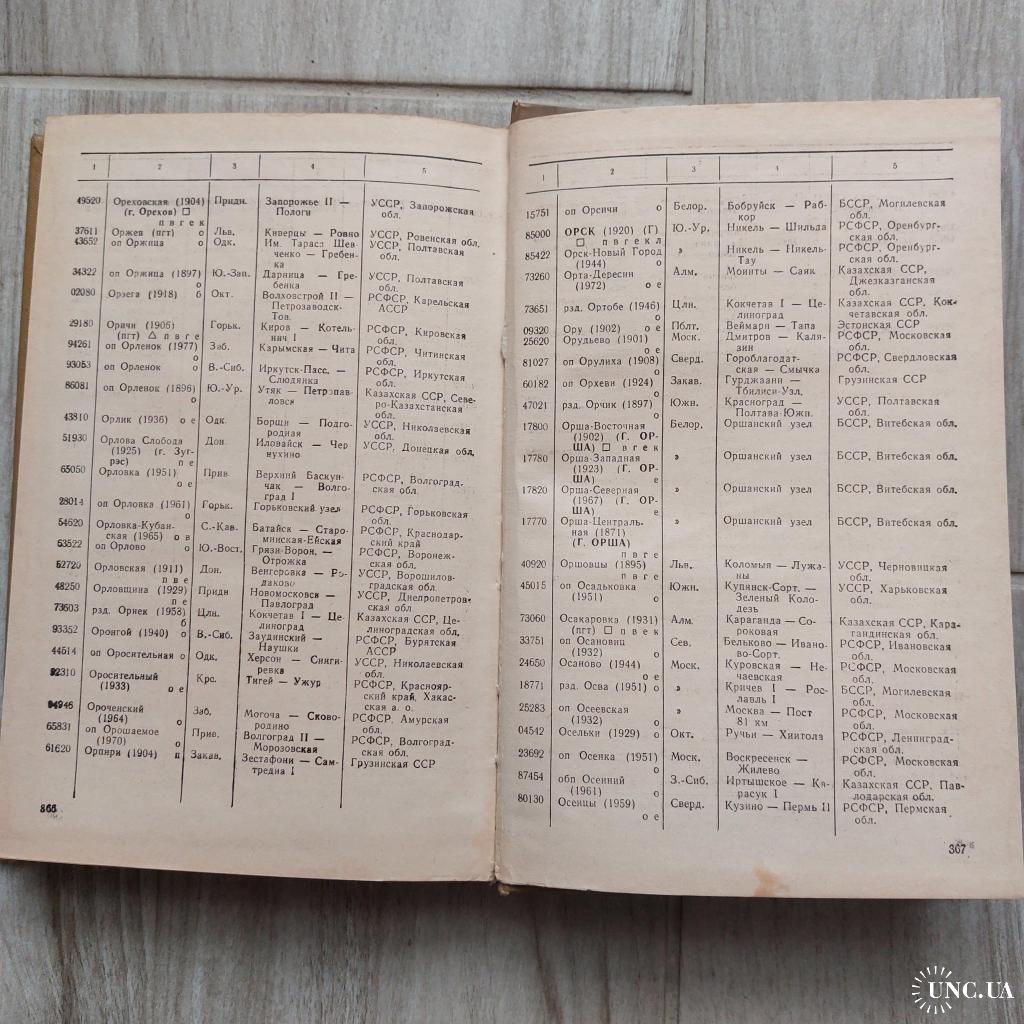 1 2 3 4 5
49520 Ореховская (1904) Придн. Запорожье II — УССР, Запорожская
(г. Орехов) □ Пологи обл.
п в г е к
37611 Оржев (пгт) о Льв. Киверцы — Ровно УССР, Ровенская обл.
43652 оп Оржица о Одк. Им. Тараса Шев- УССР, Полтавская
ченко — Гребен- обл.
ка
34322 оп Оржица (1897) Ю.-Зап. Дарница — Гре- УССР, Полтавская
о бенка обл.
02080 Орзега (1918) б Окт. Волховстрой II — РСФСР, Карельская
Петрозаводск- АССР
Тов.
29180 Оричи (1906) Горьк. Киров — Котель- РСФСР, Кировская
(пгт) △ п в г е нич I обл.
94261 оп Орленок (1977) Заб. Карымская — Чита РСФСР, Читинская
о обл.
93053 оп Орленок о В.-Сиб. Иркутск-Пасс. — РСФСР, Иркутская
Слюдянка обл.
86081 оп Орленок (1896) Ю.-Ур. Утяк — Петропав- Казахская ССР, Севе-
о ловск ро-Казахстанская
обл.
43810 Орлик (1936) о е Одк. Борщи — Подго- УССР, Николаевская
родная обл.
51930 Орлова Слобода Дон. Иловайск — Чер- УССР, Донецкая обл.
(1925) (г. Зуг- нухино
рэс) п е
65050 Орловка (1951) Прив. Верхний Баскун- РСФСР, Волгоград-
о чак — Волго- ская обл.
град I
28014 оп Орловка (1961) Горьк. Горьковский узел РСФСР, Горьковская
о обл.
54620 Орловка-Кубан- С.-Кав. Батайск — Старо- РСФСР, Краснодар-
ская (1965) о в минская-Ейская ский край
53522 оп Орлово о Ю.-Вост. Грязи-Ворон. — РСФСР, Воронеж-
Отрожка ская обл.
52720 Орловская (1911) Дон. Венгеровка — Ро- УССР, Ворошилов-
п в е даково градская обл.
48250 Орловщина (1929) Придн Новомосковск — УССР, Днепропетров-
п е Павлоград ская обл.
73603 рзд. Орнек (1958) Цлн. Кокчетав I — Це- Казахская ССР, Це-
б линоград линоградская обл.
93352 Оронгой (1940) о В.-Сиб. Заудинский — РСФСР, Бурятская
Наушки АССР
44514 оп Оросительная о Одк. Херсон — Снигн- УССР, Николаевская
ревка обл.
92310 Оросительный Крс. Тигей — Ужур РСФСР, Краснояр-
(1933) о е ский край, Хакас-
ская а. о.
94946 Ороченский Заб. Могоча — Сково- РСФСР, Амурская
(1964) о родино обл.
65831 оп Орошаемое Прив. Волгоград II — РСФСР, Волгоград-
(1970) о Морозовская ская обл.
61620 Орпири (1904) п Закав. Зестафони — Сам- Грузинская ССР
тредиа I
366
1 2 3 4 5
15751 оп Орсичи о Белор. Бобруйск — Раб- БССР, Могилевская
кор обл.
85000 ОРСК (1920) (Г) Ю.-Ур. Никель — Шильда РСФСР, Оренбург-
□ п в г е к л ская обл.
85422 Орск-Новый Город » Никель — Никель- РСФСР, Оренбург-
(1944) о Тау ская обл.
73260 Орта-Дересин Алм. Моинты — Саяк Казахская ССР,
(1972) о е Джезказганская
обл.
73651 рзд. Ортобе (1946) Цлн. Кокчетав I — Це- Казахская ССР, Кок-
о линоград четавская обл.
09320 Ору (1902) о е Пблт. Веймарн — Тапа Эстонская ССР
25620 Орудьево (1901) Моск. Дмитров — Каля- РСФСР, Московская
о е зин обл.
81027 оп Орулиха (1908) Сверд. Гороблагодат- РСФСР, Свердловская
о ская — Смычка обл.
60182 оп Орхеви (1924) Закав. Гурджаани — Грузинская ССР
о Тбилиси-Узл.
47021 рзд. Орчик (1897) Южн. Красноград — УССР, Полтавская
о Полтава-Южн. обл.
17800 Орша-Восточная Белор. Оршанский узел БССР, Витебская обл.
(1902) (Г. ОР-
ША) □ в г е к
17780 Орша-Западная » Оршанский узел БССР, Витебская обл.
(1923) (Г. ОР-
ША) е
17820 Орша-Северная » Оршанский узел БССР, Витебская обл.
(1967) (Г. ОР-
ША) е
17770 Орша-Централь- » Оршанский узел БССР, Витебская обл.
ная (1871)
(Г. ОРША)
п в г е
40920 Оршовцы (1895) Льв. Коломыя — Лужа- УССР, Черновицкая
п в г е ны обл.
45015 оп Осадьковка Южн. Купянск-Сорт. — УССР, Харьковская
(1951) о Зеленый Коло- обл.
дезь
73060 Осакаровка (1931) Алм. Караганда — Со- Казахская ССР, Кара-
(пгт) □ п в е к роковая гандинская обл.
33751 оп Осановец Сев. Бельково — Ивано- РСФСР, Ивановская
(1932) о во-Сорт. обл.
24650 Осаново (1944) Моск. Куровская — Не- РСФСР, Московская
о е чаевская обл.
18771 рзд. Осва (1951) о » Кричев I — Рос- БССР, Могилевская
лавль I обл.
25283 оп Осеевская » Москва — Пост РСФСР, Московская
(1932) о 81 км обл.
04542 Осельки (1929) о Окт. Ручьи — Хиитола РСФСР, Ленинград-
ская обл.
23692 оп Осенка (1951) Моск. Воскресенск — РСФСР, Московская
о Жилево обл.
87454 обп Осенний З.-Сиб. Иртышское — Ка- Казахская ССР, Пав-
(1961) о расук I лодарская обл.
80130 Осенцы (1959) Сверд. Кузино — Пермь II РСФСР, Пермская
о е обл.
367
UNC.UA